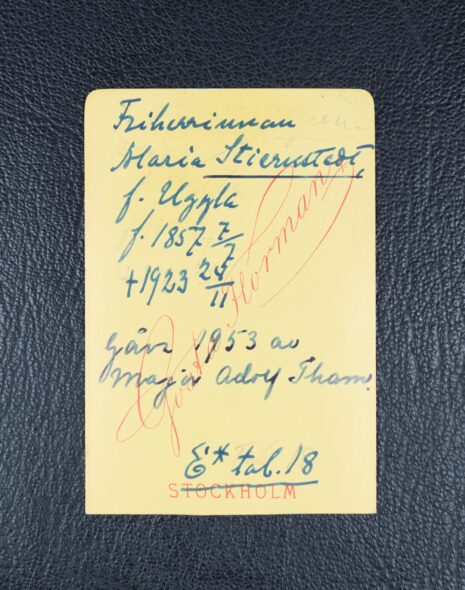 Friherrinnan
Maria Stiernstedt,
f. Uggla
f. 1857 7/7
†1923 24/11
Gösta Florman
gåva 1953 av
major Adolf Tham.
E* tab. 18
STOCKHOLM